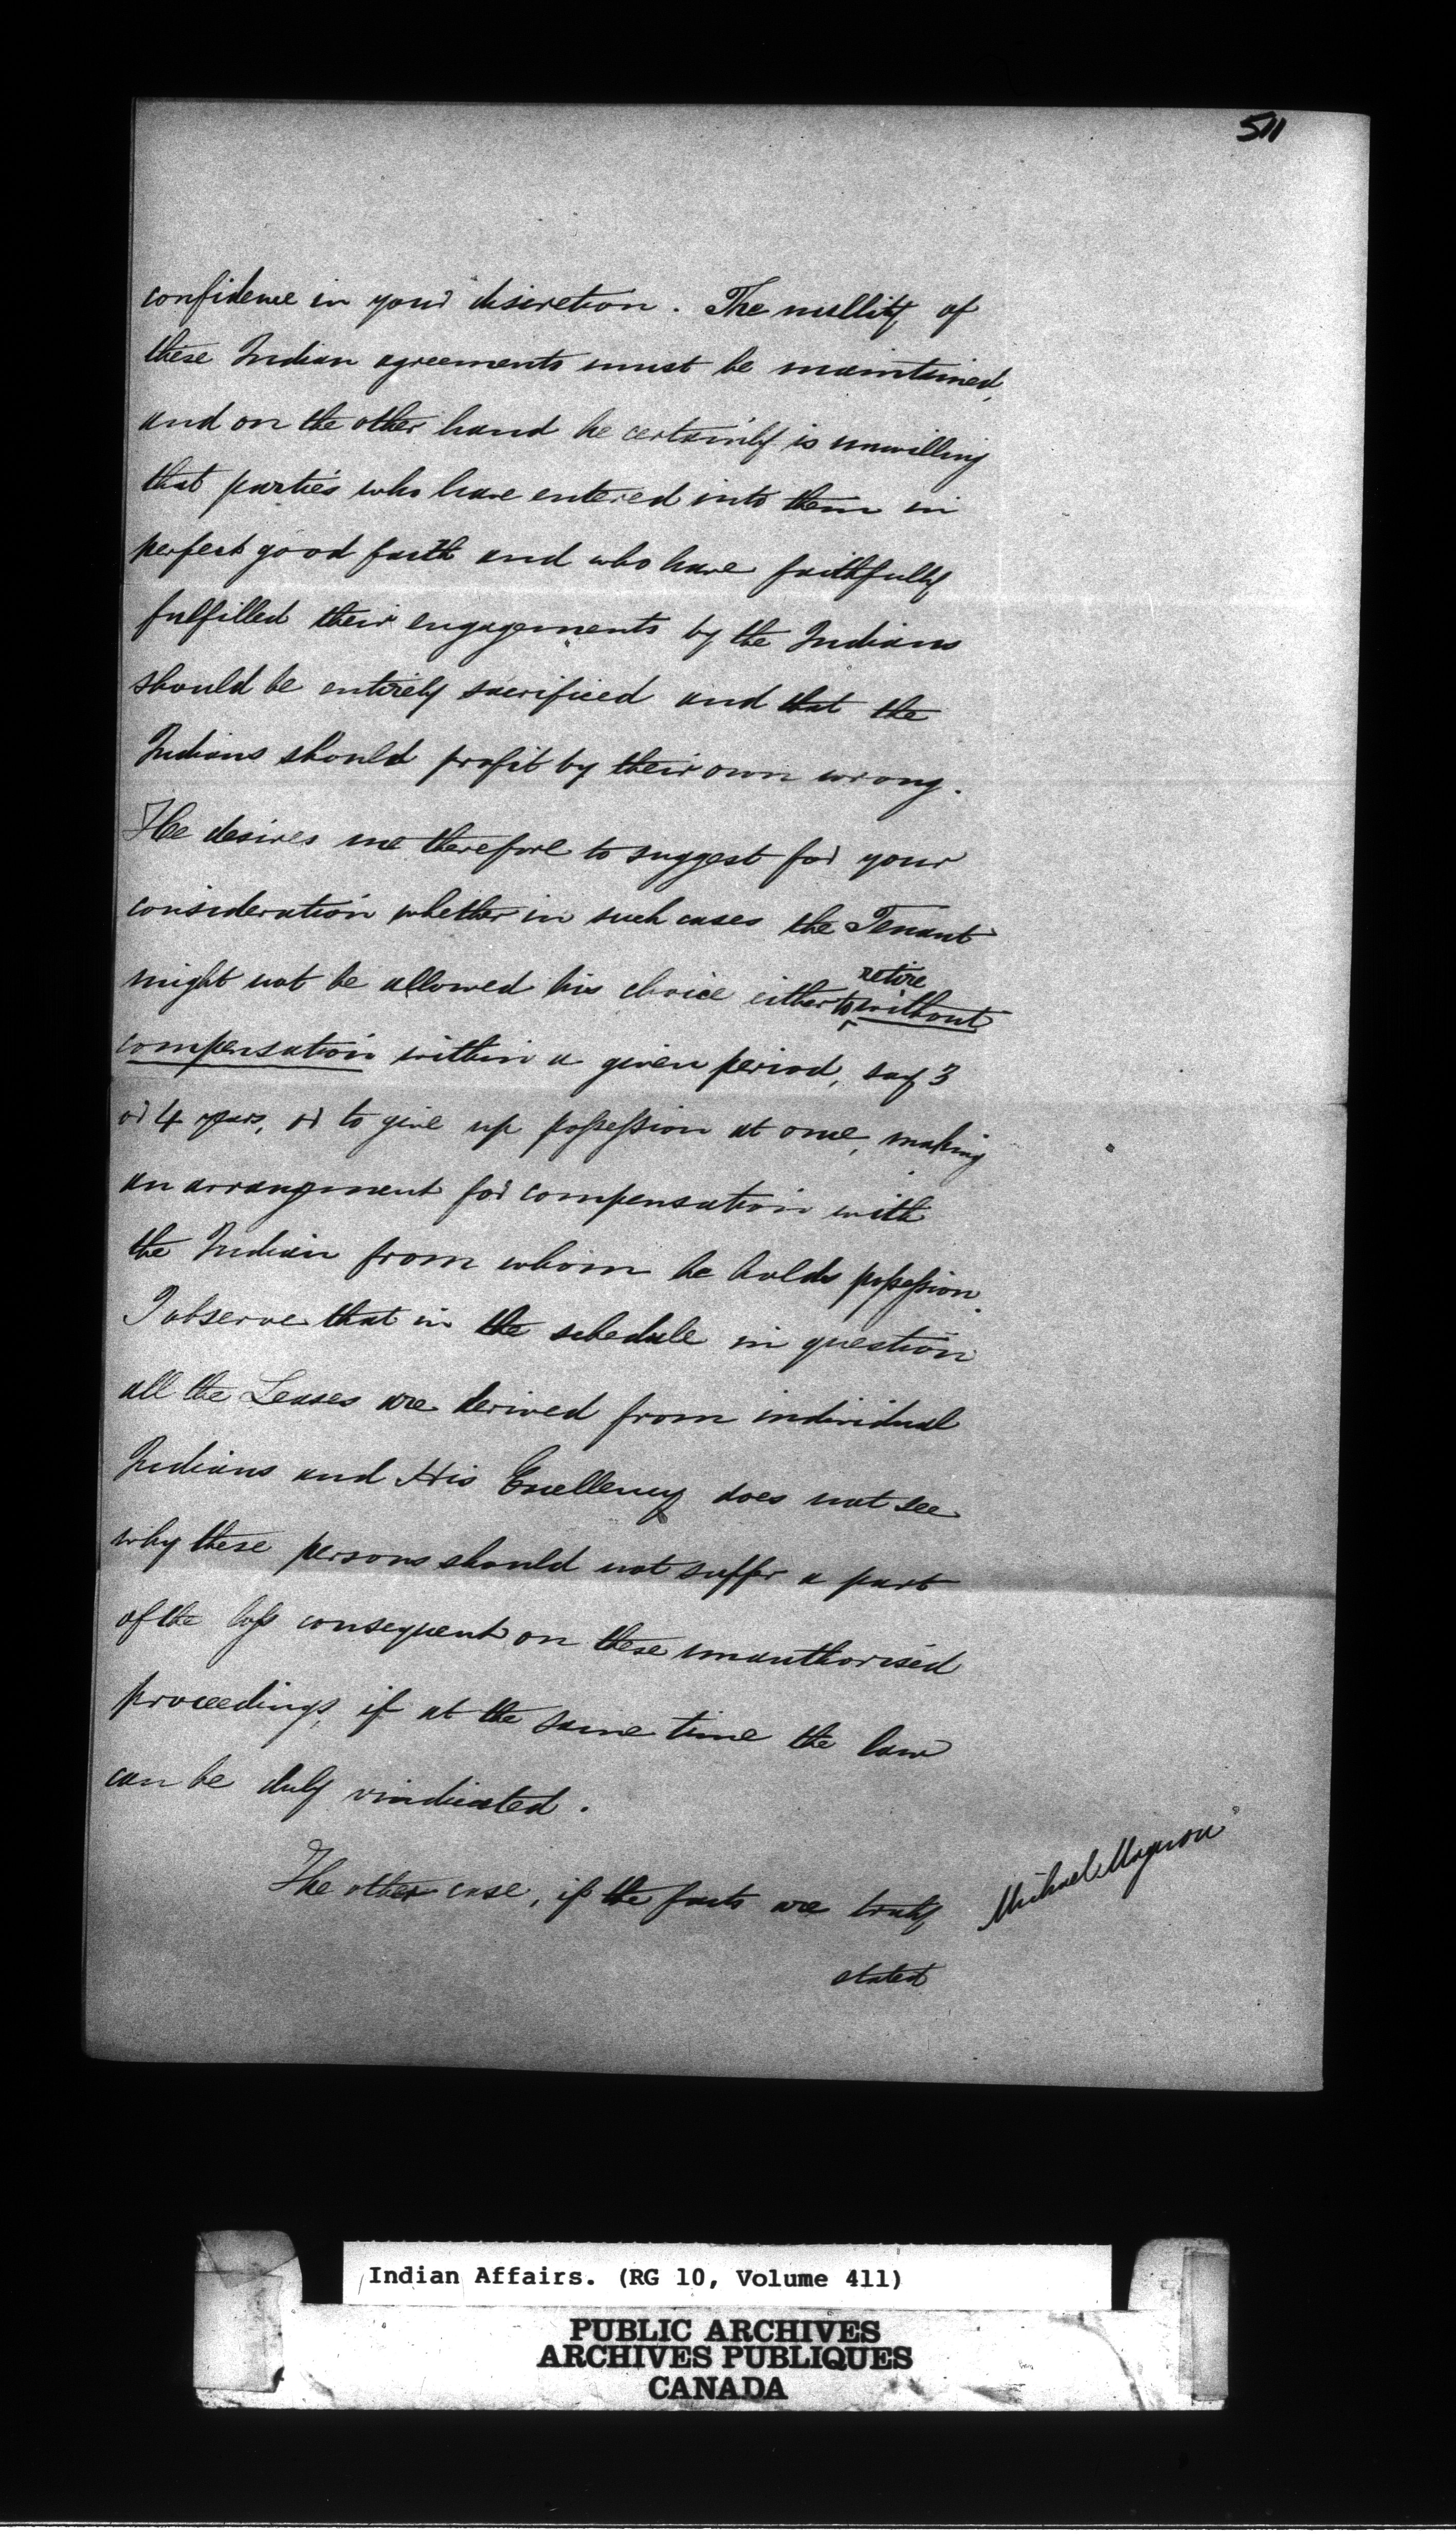 511
confidence in your discretion. The nullity of
these Indian agreements must be maintained,
and on the other hand he certainly is unwilling
that parties who have entered into them in
perfect good faith and who have faithfully
fulfilled their engagements by the Indians
should be entirely sacrificed and that the
Indians should profit by their own wrong.
He desires me therefore to suggest for your
consideration whether in such cases the Tenant
might not be allowed his choice either to retire without
compensation within a given period, say 3
or 4 years, or to give up possession at once, making
an arrangment for compensation with
the Indian from whom he holds possession.
I observe that in the schedule in question
all the Leases are derived from individual
Indians and His Excellency does not see
why these persons should not suffer a part
of the loss consequent on these unauthorised
proceedings, if at the same time the law
can be duly vindicated.
The other case, if the facts are truly
Michael
stated
Indian Affairs. (RG 10, Volume 411)
PUBLIC ARCHIVES
ARCHIVES PUBLIQUES
CANADA